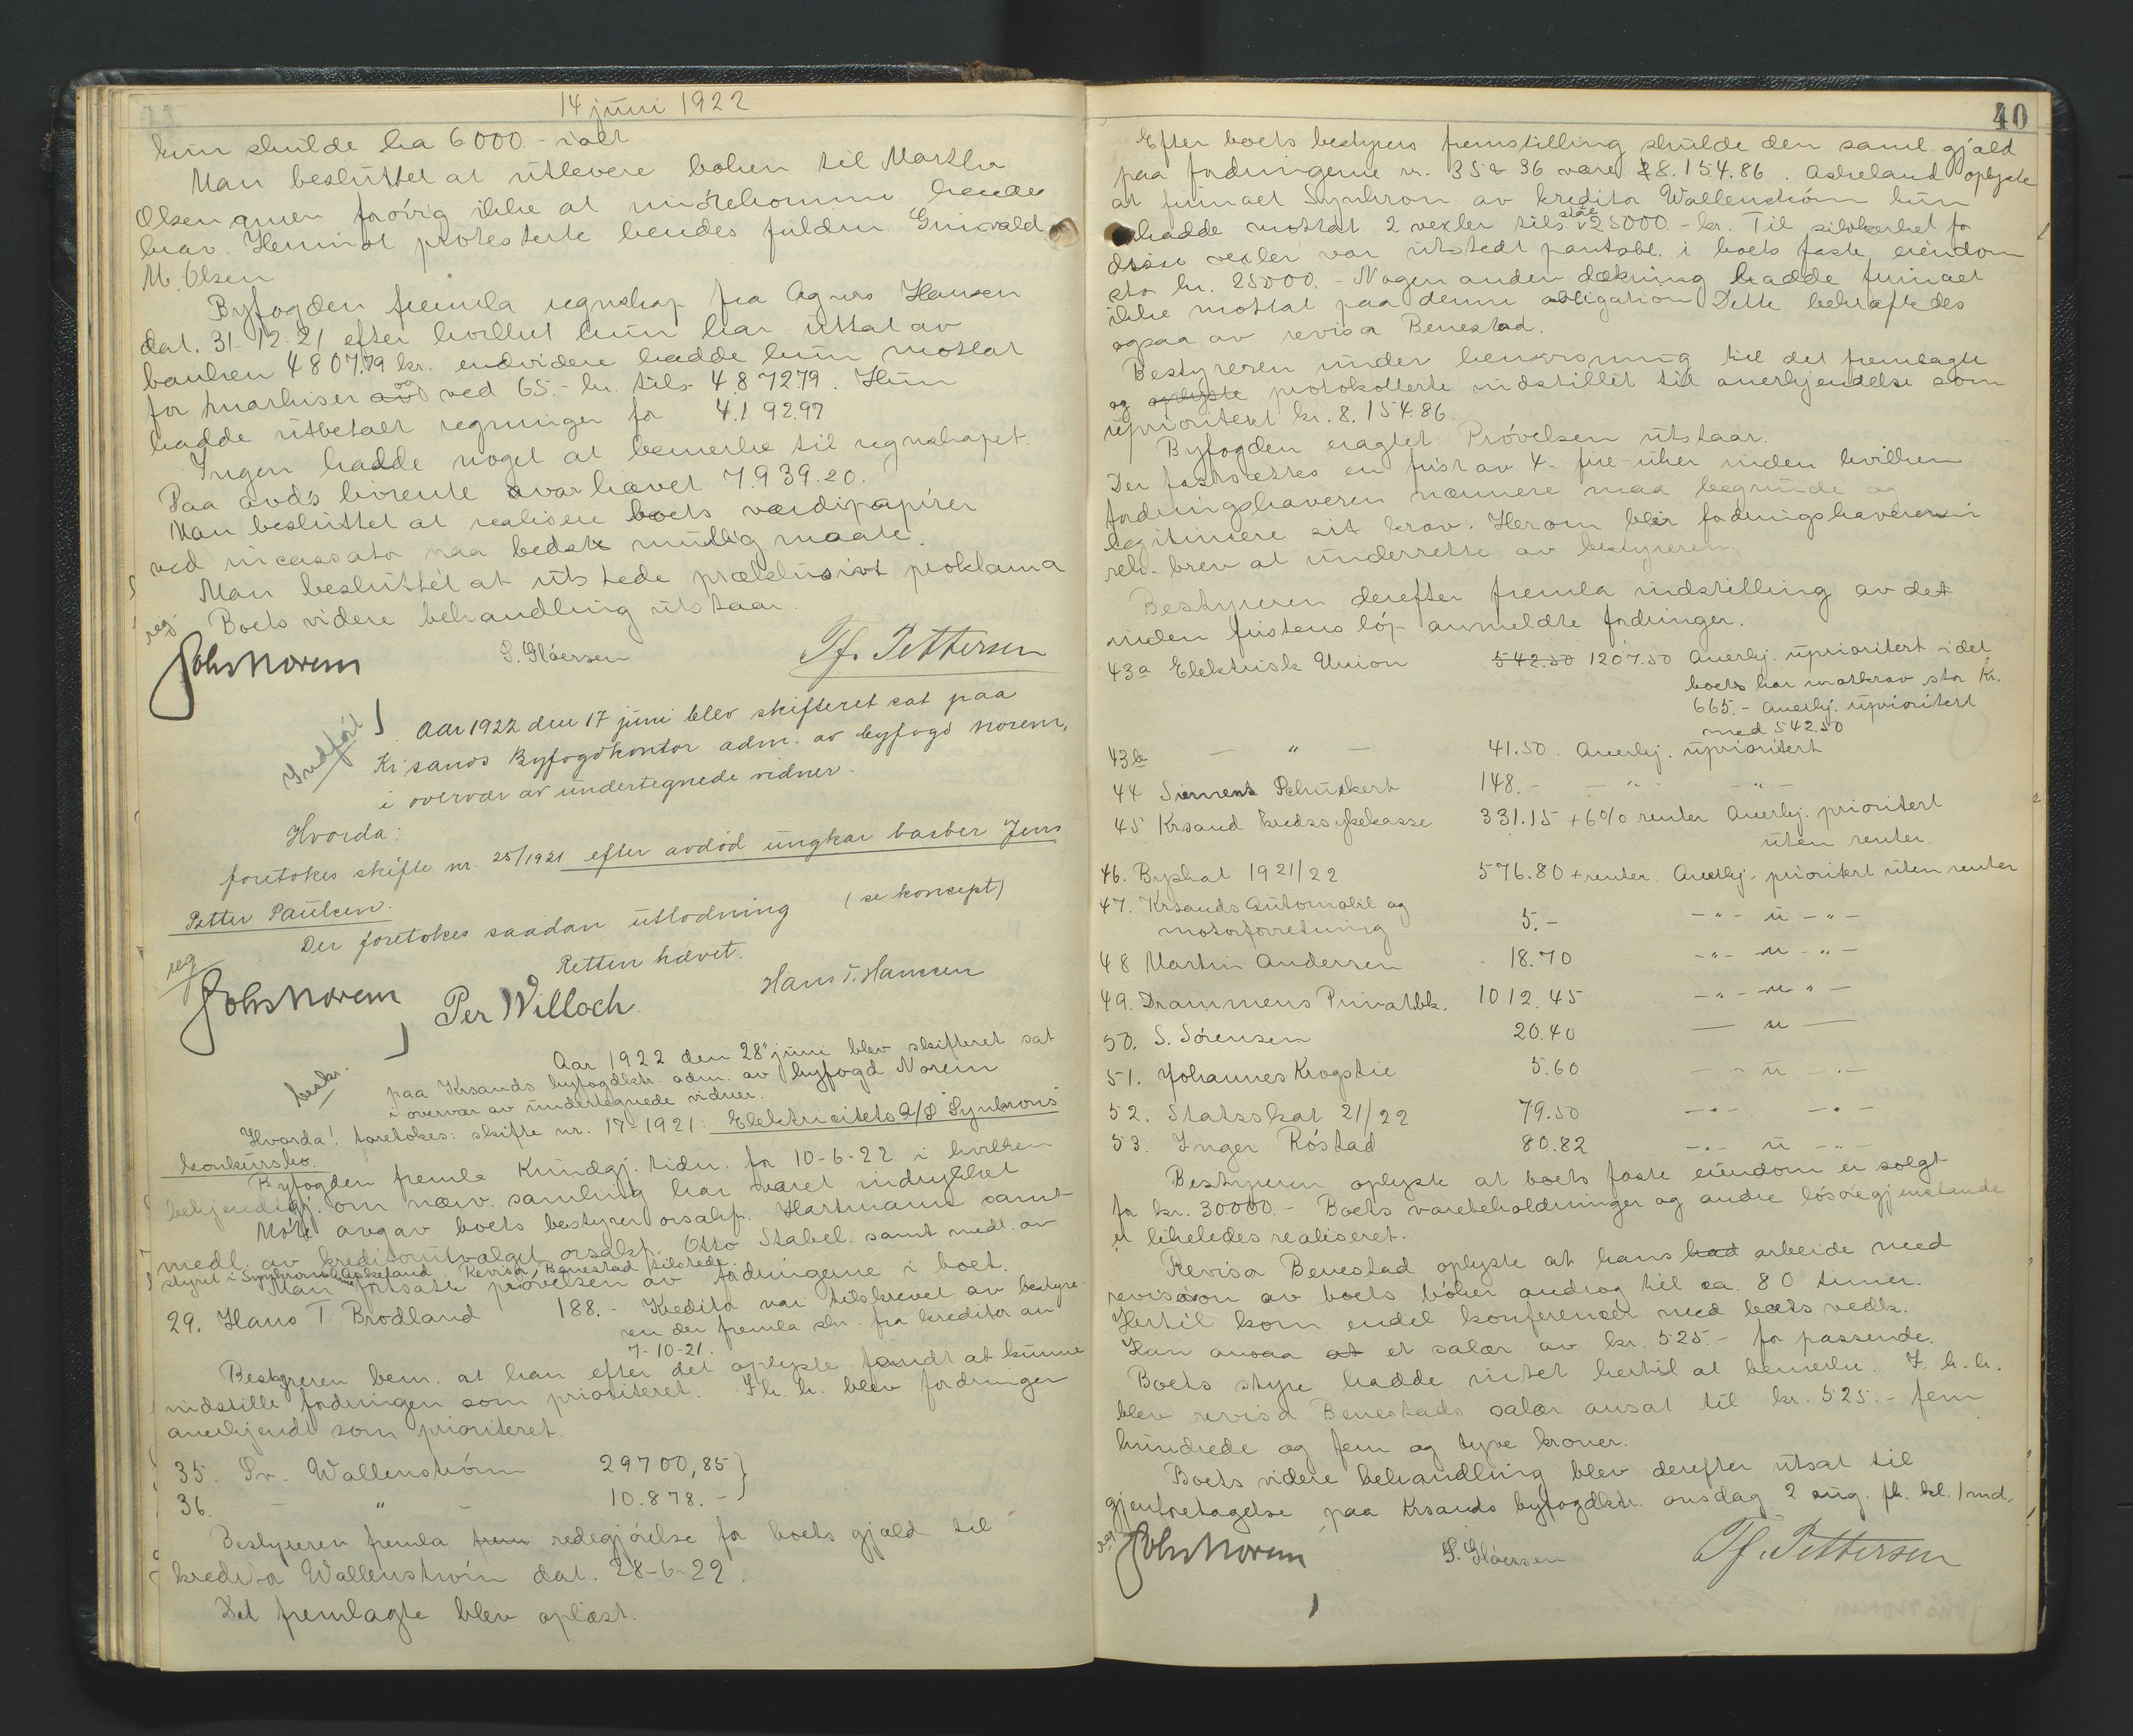 14 juni 1922
hun skulde ha 6000.- ialt
Man besluttet at utlevere boken til Martha
Olsen men forøvrig ikke at imøtekomme hendes
krav. Herimot protesterte hendes fuldm. Grimvald
M. Olsen
Byfogden fremla regnskap fra Agnes Hansen
dat. 31-12-21 efter hvilket hun har uttat av
banken 4807.79 kr. endvidere hadde hun mottat
for markiser og ved 65.- kr. tils. 4.872.79. Hun
hadde utbetalt regninger for 4.192.97
Ingen hadde noget at bemerke til regnskapet.
Paa avd's livrente var hævet 7.939.20.
Man besluttet at realisere boets værdipapirer
ved incassator paa bedste mulig maate.
Man besluttet at utstede præklusivt proklama
reg. Boets videre behandling utstaar.
Johs Norem S. Gløersen Tf. Pettersen
Indført Aar 1922 den 17 juni blev skifteret sat paa
Kr.sands Byfogdkontor adm. av byfogd Norem,
i overvær av undertegnede vidner.
Hvorda:
foretokes skifte nr. 25/1921 efter avdød ungkar barber Jens
Petter Paulsen.
Der foretokes saadan utlodning (se koncept)
Retten hævet.
reg
Johs Norem Per Willoch Hans T. Hansen
beskr. Aar 1922 den 28" juni blev skifteret sat
paa Krsands byfogdktr. adm. av byfogd Norem
i overvær av undertegnede vidner.
Hvorda! foretokes: skifte nr. 17-1921: Elektricitets A/S Synkrons
konkursbo.
Byfogden fremla Kundgj. tidn. for 10-6-22 i hvilken
bekjendtgj. om nærv. samling har været indrykket
Møte avgav boets bestyrer orsakf. Hartmann samt
medl. av kreditorutvalget orsakf. Otto Stabel. samt medl. av
styret i Synkron Askeland. Revisor Benestad tilstede.
Man fortsatte prøvelsen av fordringerne i boet.
29. Hans T. Brodland 188.- Kreditor var tilskrevet av bestyre-
ren der fremla skr. fra kreditor av
7-10-21.
Bestyreren bem. at han efter det oplyste fandt at kunne
indstille fordringen som prioriteret. I h. h. blev fordringen
anerkjendt som prioriteret.
35. Sv. Wallenstrøm 29700,85
36. - " - 10.878.-
Bestyreren fremla frem redegjørelse for boets gjæld til
kreditor Wallenstrøm dat. 28-6-22.
Det fremlagte blev oplæst.
40
Efter boets bestyrers fremstilling skulde den saml. gjæld
paa fordringerne nr. 35 & 36 være 8.154.86. Askeland oplyste
at firmaet Synkron av kreditor Wallenstrøm kun
hadde mottat 2 vexler tils. store 25000.- kr. Til sikkerhet for
disse vexler var utstedt pantobl. i boets faste eiendom
stor kr. 25000.- Nogen anden dækning hadde firmaet
ikke mottat paa denne obligation Dette bekræftedes
ogsaa av revisor Benestad.
Bestyreren under henvisning til det fremlagte
og oplyste protokollerte indstillet til anerkjendelse som
uprioritert kr. 8.154.86.
Byfogden eragtet Prøvelsen utstaar.
Der fastsættes en frist av 4- fire- uker inden hvilken
fordringshaveren nærmere maa begrunde og
legitimere sit krav. Herom blir fordringshaveren i
rek. brev at underrette av bestyreren.
Bestyreren derefter fremla indstilling av det
inden fristens løp anmeldte fordringer.
43a Elektrisk Union 542.50 1207.50 Anerkj. uprioritert idet
boets har motkrav stor Kr.
665.- Anerkj. uprioritert
med 542.50
43b - " - 41.50. Anerkj. uprioritert
44 Siemens Schuckert 148.- - " - - " -
45 Krsand Kredssykekasse 331.15 + 6% renter Anerkj. prioritert
uten renter.
46. Byskat 1921/22 576.80 + renter. Anerkj. prioritert uten renter
47. Krsands Automobil og
motorforretning 5.- - " - u - " -
48 Martin Andersen 18.70 - " - u - " -
49. Drammens Privatbk. 1012.45 - " - u " -
50. S. Sørensen 20.40 — u —
51. Johannes Krogstie 5.60 - " u - " -
52. Statsskat 21/22 79.50 - " - - " -
53. Inger Røstad 80.82 - " - u - " -
Bestyreren oplyste at boets faste eiendom er solgt
for kr. 30000.- Boets varebeholdninger og andre løsøregjenstande
er likeledes realiseret.
Revisor Benestad oplyste at hans had arbeide med
revision av boets bøker androg til ca. 80 timer.
Hertil kom endel konferencer med boets vedk.
Han ansaa at et salær av kr. 525.- for passende.
Boets styre hadde intet hertil at bemerke. I. h. h.
blev revisor Benestads salær ansat til kr. 525.- fem
hundrede og fem og tyve kroner.
Boets videre behandling blev derefter utsat til
gjenforetagelse paa Krsands byfogdktr. onsdag 2 aug. fk. kl. 1 md.
reg
Johs Norem S. Gløersen Tf. Pettersen